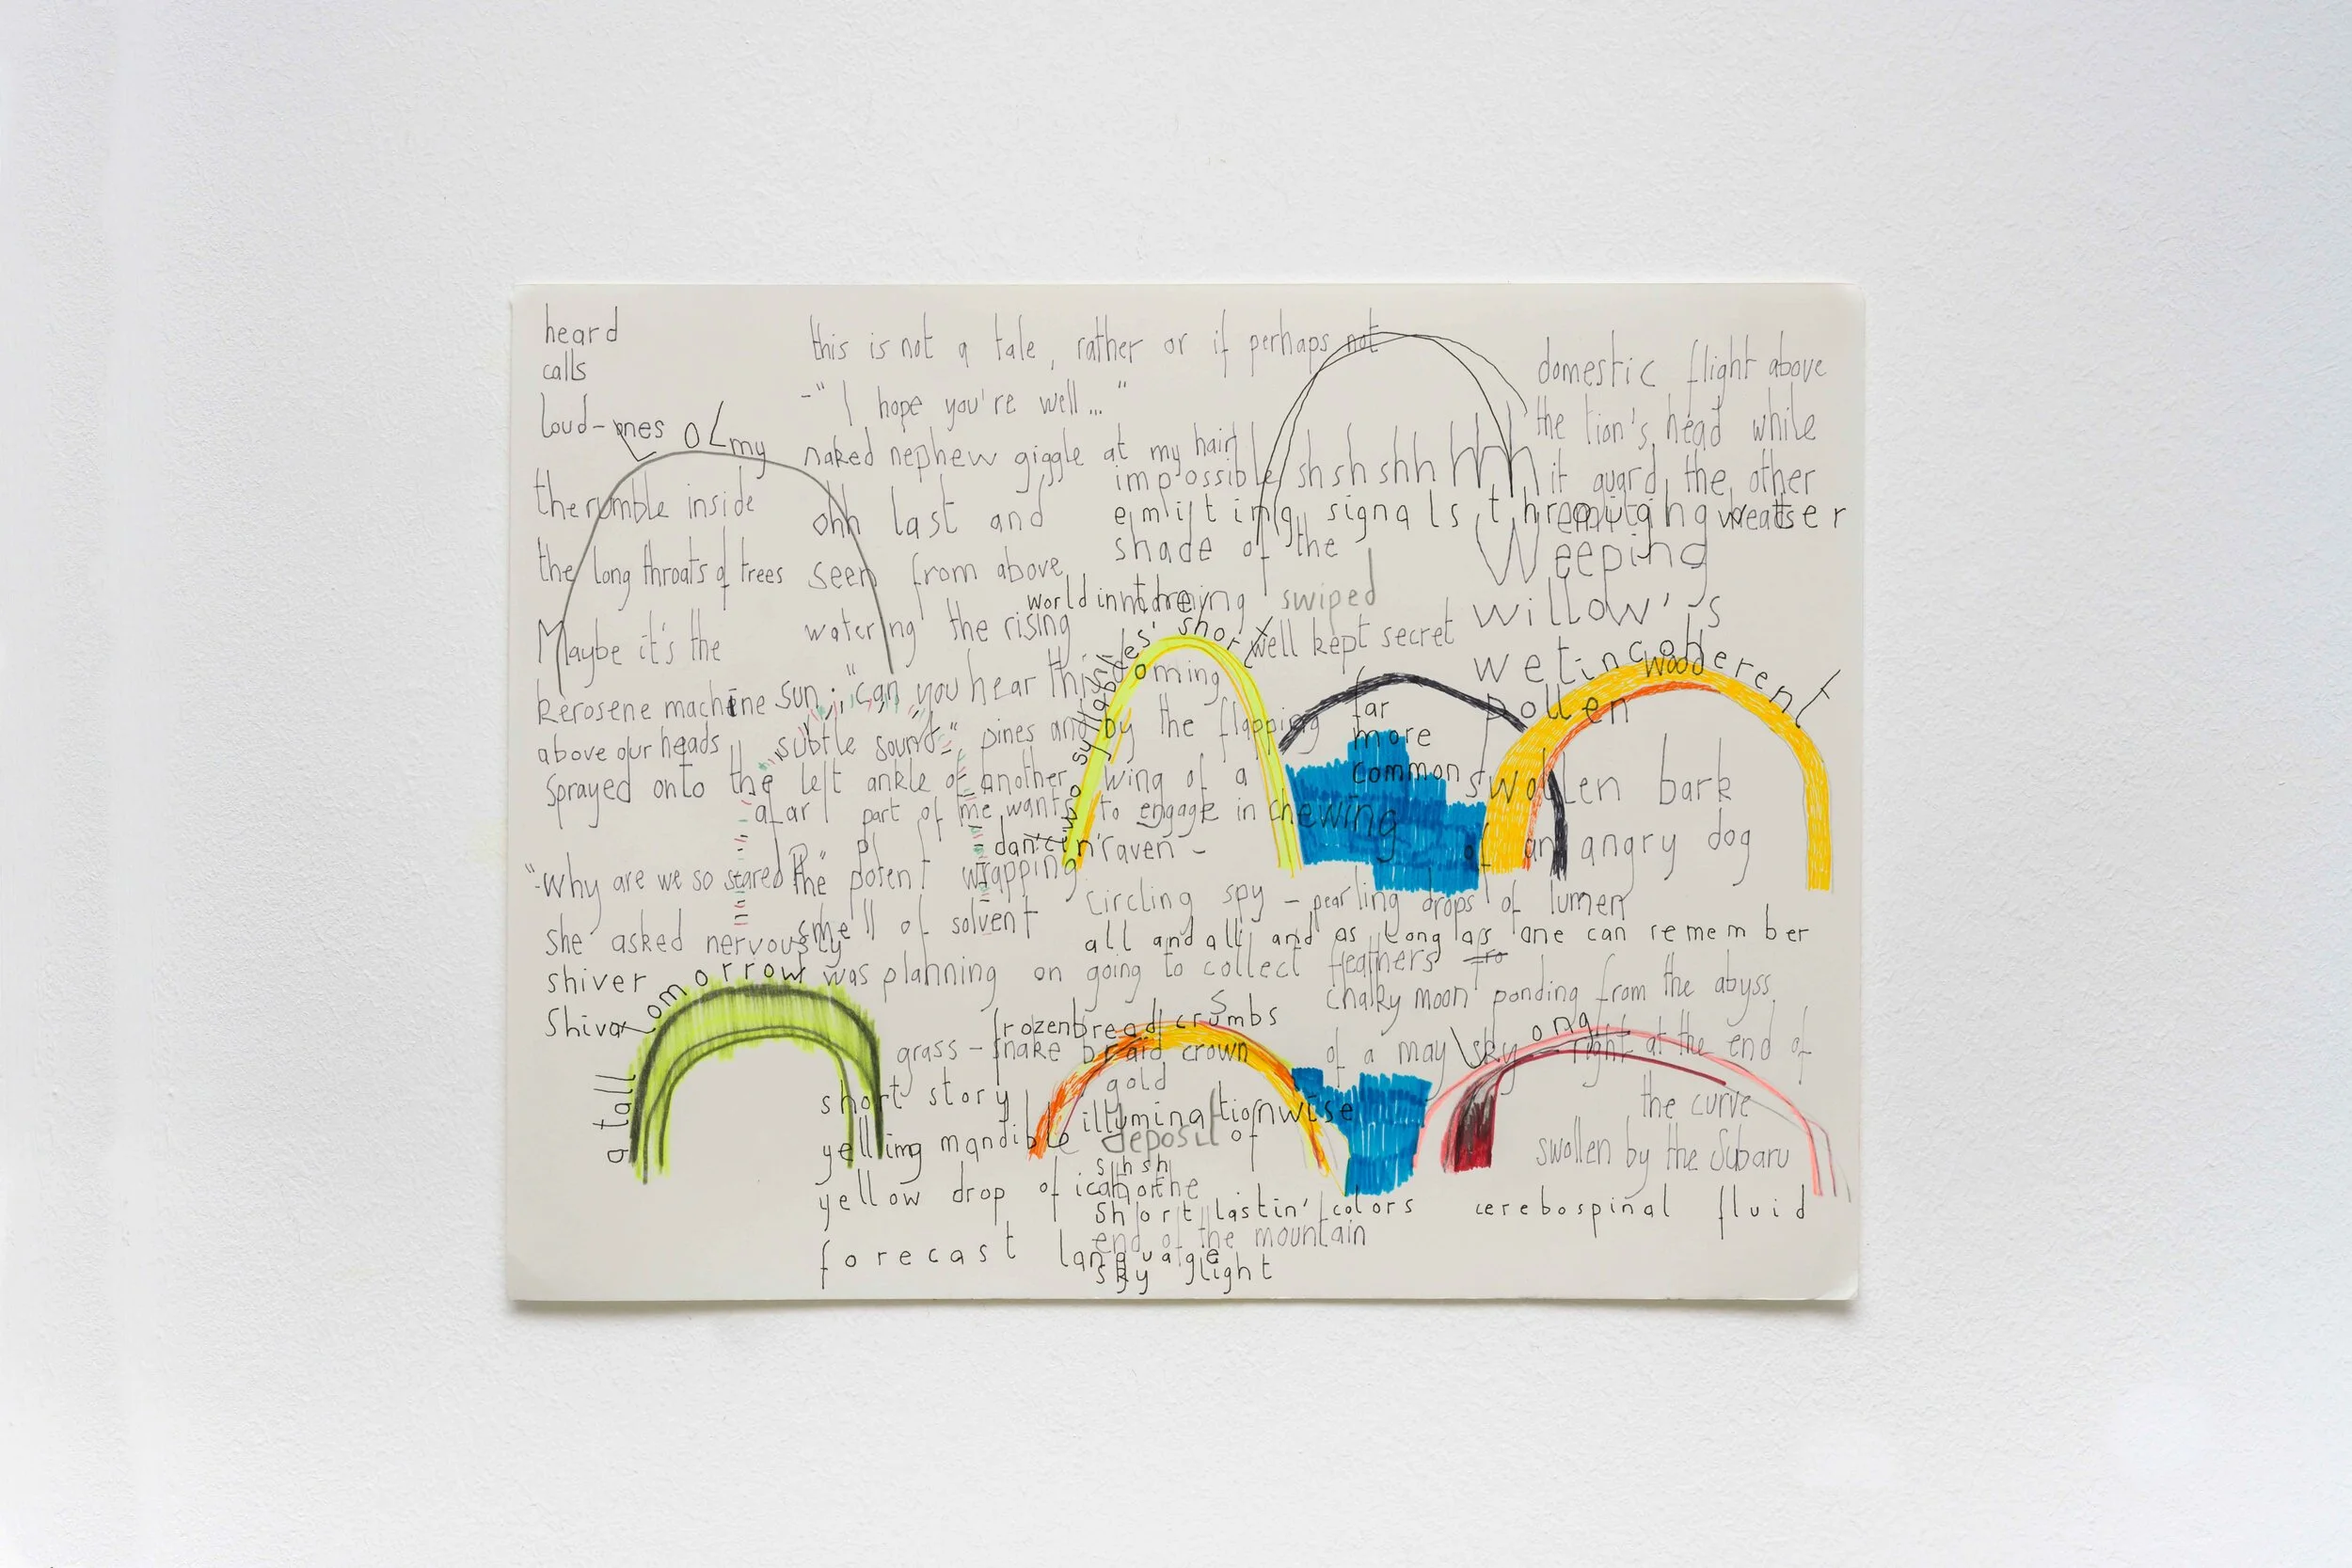 heard
calls
loud-ones
my
the rumble inside
the long throats of trees
Maybe it's the
kerosene machine
above our heads
sprayed onto the left ankle of another
afar part of me wants to engage in chewing
"-why are we so stared
she asked nervously
shiver
Shiva
this is not a tale, rather or if perhaps not
-" I hope you're well..."
naked nephew giggle at my hair
ohh last and
seen from above
watering the rising
sun; "can you hear this
subtle sound-"
pines and by the flapping
wing of a
raven -
the potent wrapping
smell of solvent
was planning on going to collect feathers
impossible shshshhhhh
emitting signals through
shade of the
swiped
well kept secret
domestic flight above
the lion's head while
it guard the other
Weeping
willow's
wet
wood
pollen
incoherent
syllabdes' short
oming
far
more
common
swollen bark
of an angry dog
circling spy - pearling drops of lumen
all and all and as long as one can remember
chalky moon ponding from the abyss
of a may sky - right at the end of
the curve
swollen by the Subaru
cerebospinal fluid
a tall
tomorrow
frozen bread crumbs
grass-snake braid crown
gold
short story
illumination wise
yelling mandible
deposit of
shsh
yellow drop of
short lastin' colors
end of the mountain
forecast language
sky light